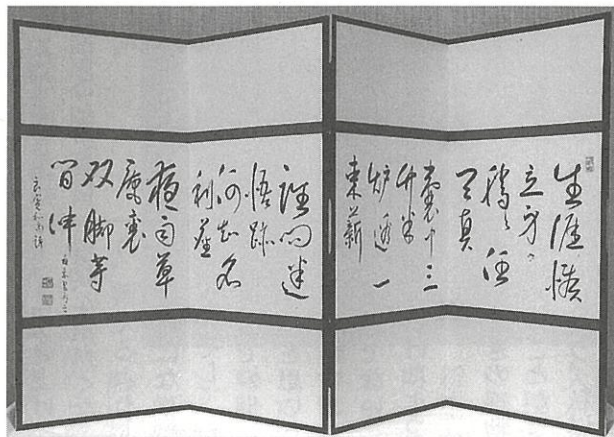 生涯懶
立身
騰々任
天真
嚢中三
升米
炉辺一
束薪
誰問迷
悟跡
何知名
利塵
夜雨草
庵裏
双脚等
間伸
良寛和尚詩